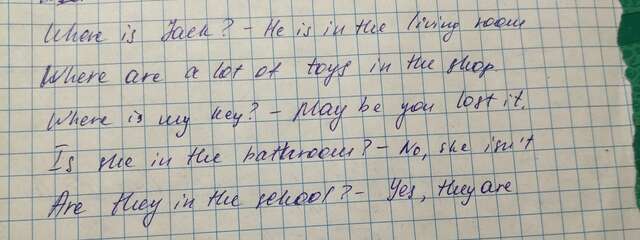 Where is Jack? - He is in the living room
Where are a lot of toys in the shop.
Where is my key? - May be you lost it.
Is she in the bathroom? - No, she isn't
Are they in the school? - Yes, they are